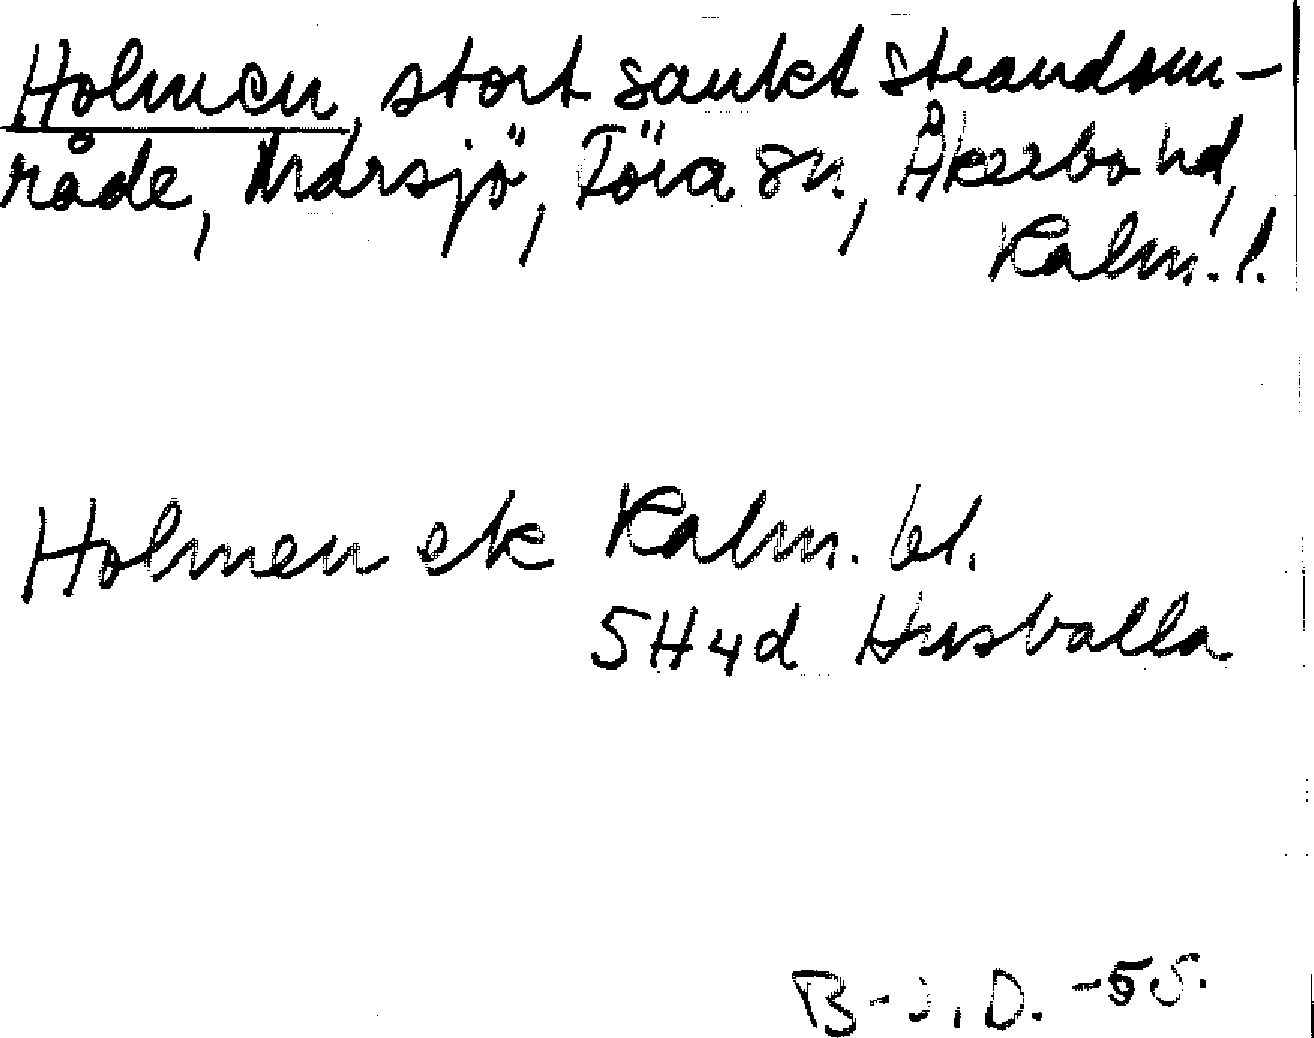 Holmen, stort sankt strandom-
råde, Marsjö, Föra sn, Åkerbo hd,
Kalm. l.
Holmen ek Kalm. bl.
5H4d Husvalla
B-J. D. -55.